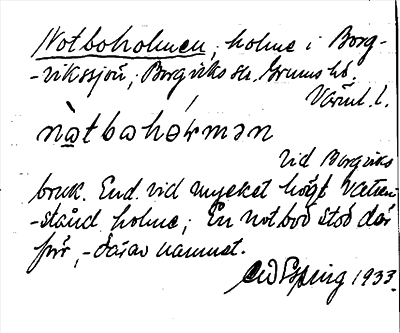 Notboholmen, holme i Borg-
-vikssjön, Borgviks sn. Grums hd.
Värml. l.
nò̱tbohólmən
Vid Borgviks
bruk. End. vid mycket högt vatten-
-stånd holme; En notbod stod där
förr, - därav namnet.
1933.